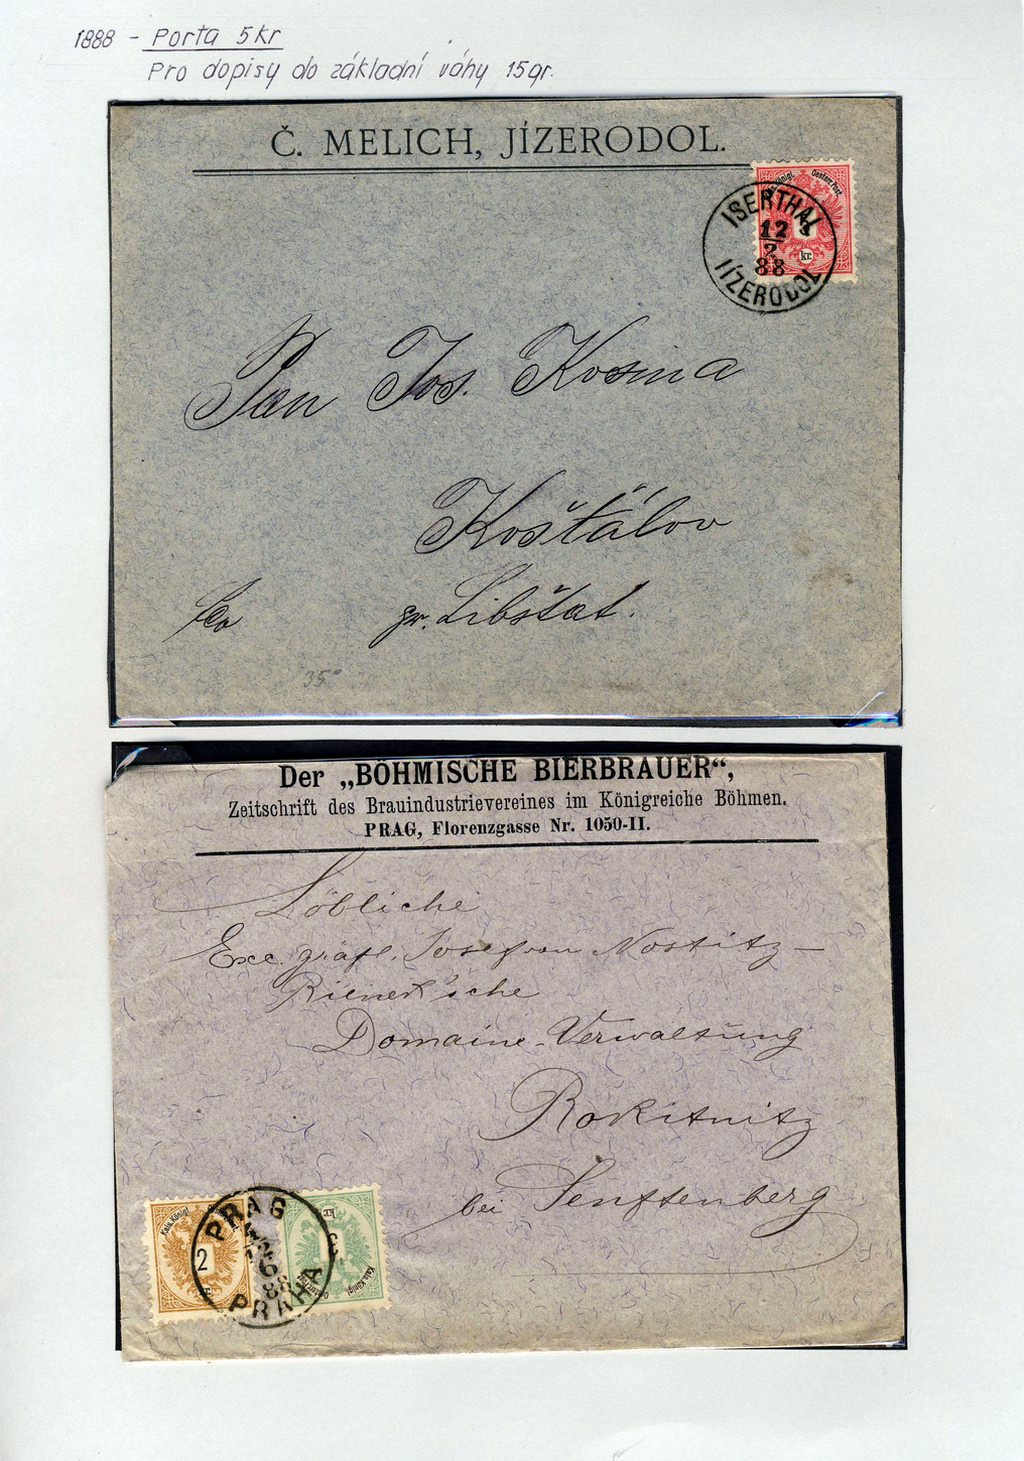 1888 - Porta 5kr
Pro dopisy do základní váhy 15gr.
Č. MELICH, JÍZERODOL.
ISERTHAL
12
2
88
JÍZERODOL
kr.
Pan Jos. Kosina
Košťálov
pr. Libštat.
35°
Der „BÖHMISCHE BIERBRAUER“,
Zeitschrift des Brauindustrievereines im Königreiche Böhmen.
PRAG, Florenzgasse Nr. 1050-II.
Löbliche
Exc. gräfl. Josef von Nostitz-
Rienek'sche
Domaine-Verwaltung
Rokitnitz
bei Senftenberg
Kais. Königl.
2
PRAG
6
88
PRAHA
3
kr.
Kais. Königl.